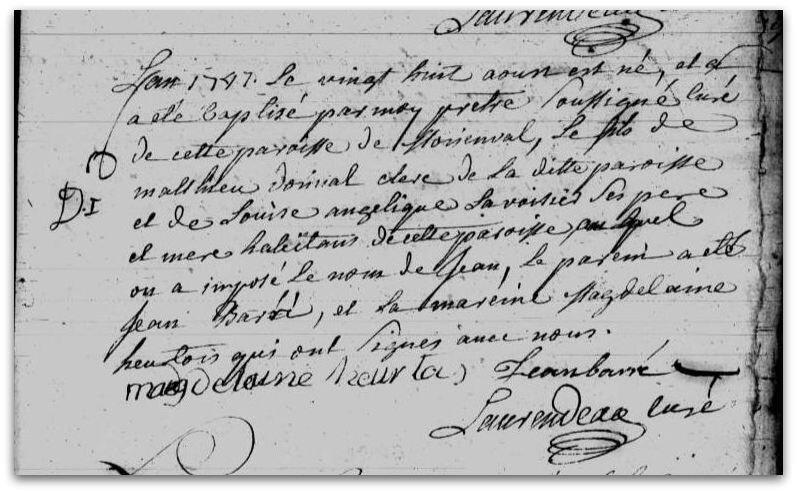 Laurendeau
Lan 1747. Le vingt huit aoust est né, et
a eté baptisé par moy pretre soussigné curé
de cette paroisse de Morienval, le fils de
matthieu donnal clerc de la ditte paroisse
et de Louise angelique Lavoisier ses pere
et mere habitans de cette paroisse, au quel
on a imposé le nom de Jean, le parein a eté
Jean Barré, et la mareine Magdelaine
heurtois qui ont signés avec nous.
magdelaine heurta Jean barré
Laurendeau curé
D.I